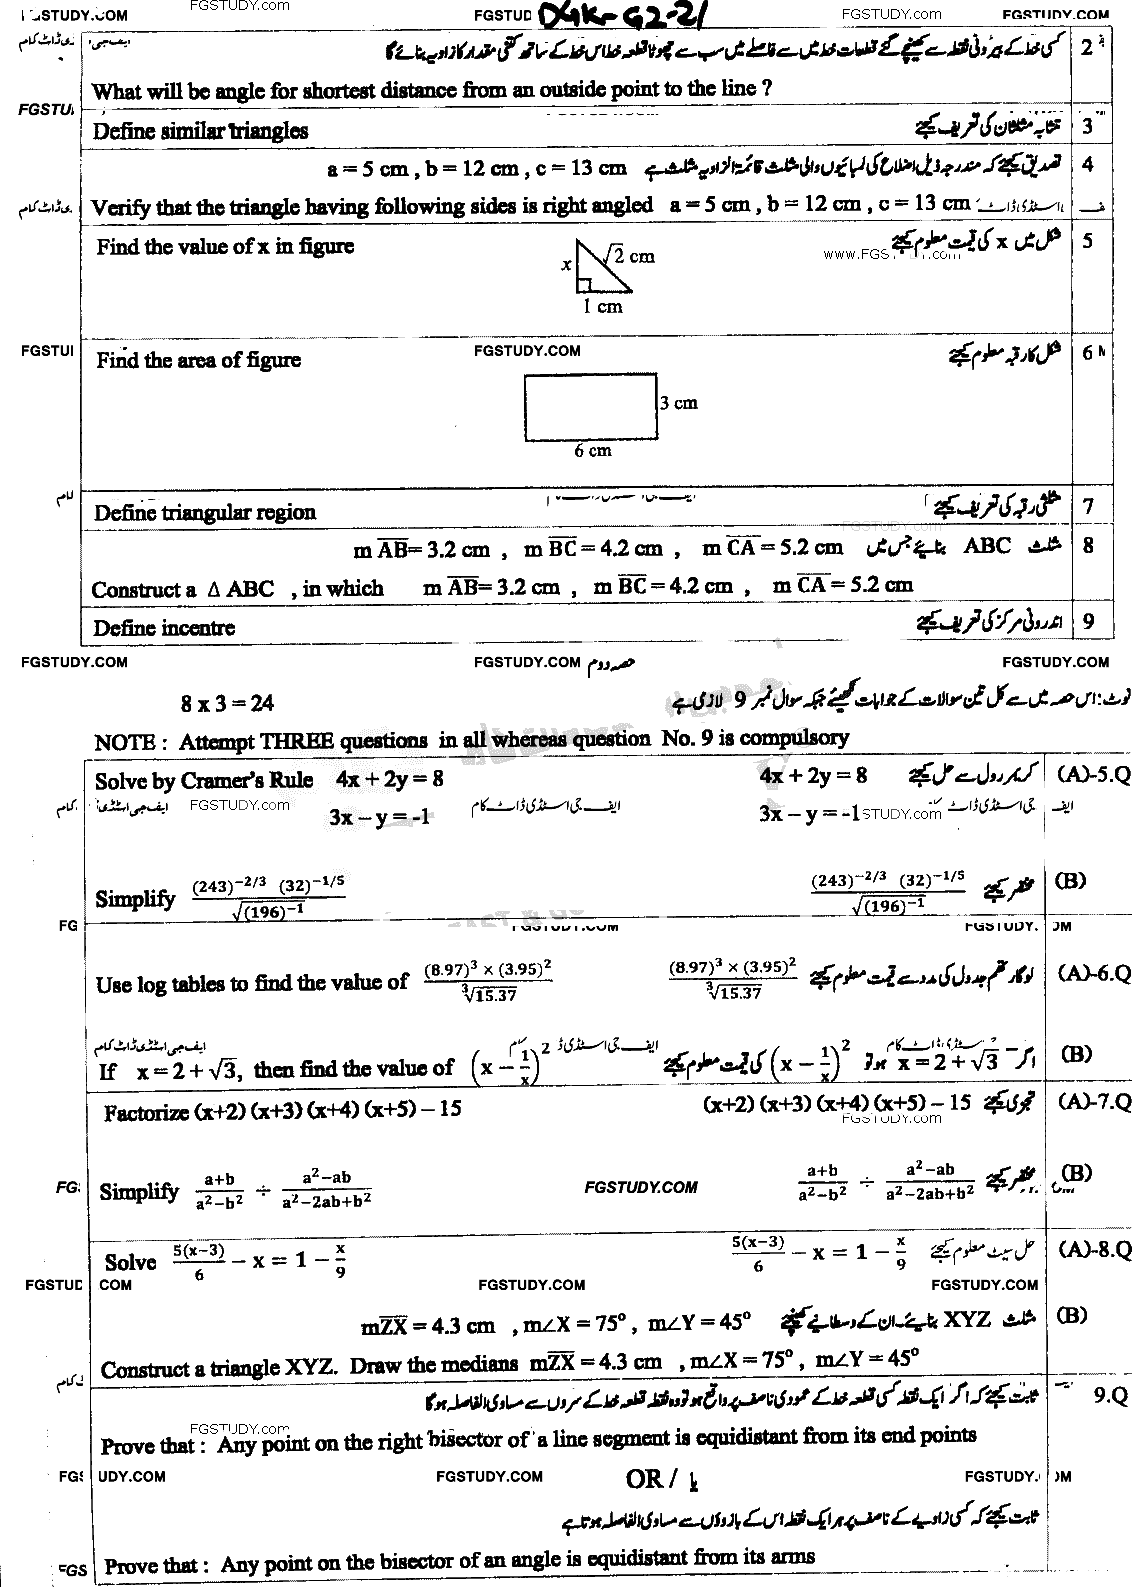 FGSTUDY.COM FGSTUDY.com FGSTUD DGK-G2-21 FGSTUDY.com FGSTUDY.COM
2 کسی خط کے بیرونی نقطہ سے کھینچے گئے قطعات خط میں سے فاصلے میں سب سے چھوٹا قطعہ خط اس خط کے ساتھ کتنی مقدار کا زاویہ بنائے گا
What will be angle for shortest distance from an outside point to the line ?
3 متشابہ مثلثان کی تعریف کیجئے
Define similar triangles
4 تصدیق کیجئے کہ مندرجہ ذیل اضلاع کی لمبائیوں والی مثلث قائمۃ الزاویہ مثلث ہے a = 5 cm , b = 12 cm , c = 13 cm
Verify that the triangle having following sides is right angled a = 5 cm , b = 12 cm , c = 13 cm
5 شکل میں x کی قیمت معلوم کیجئے
Find the value of x in figure
x √2 cm
1 cm
6 شکل کا رقبہ معلوم کیجئے
Find the area of figure
FGSTUDY.COM
3 cm
6 cm
7 مثلثی رقبہ کی تعریف کیجئے
Define triangular region
8 مثلث ABC بنائیے جس میں m AB = 3.2 cm , m BC = 4.2 cm , m CA = 5.2 cm
Construct a Δ ABC , in which m AB = 3.2 cm , m BC = 4.2 cm , m CA = 5.2 cm
9 اندرونی مرکز کی تعریف کیجئے
Define incentre
FGSTUDY.COM FGSTUDY.COM حصہ دوم FGSTUDY.COM
8 x 3 = 24 نوٹ: اس حصہ میں سے کل تین سوالات کے جوابات لکھیئے جبکہ سوال نمبر 9 لازمی ہے
NOTE : Attempt THREE questions in all whereas question No. 9 is compulsory
Solve by Cramer's Rule 4x + 2y = 8 4x + 2y = 8 کریمر رول سے حل کیجئے (A)-5.Q
3x – y = -1 3x – y = -1
ایف جی اسٹڈی ڈاٹ کام FGSTUDY.com
Simplify (243)^-2/3 (32)^-1/5 / √(196)^-1 (243)^-2/3 (32)^-1/5 / √(196)^-1 مختصر کیجئے (B)
Use log tables to find the value of (8.97)^3 × (3.95)^2 / ∛15.37 (8.97)^3 × (3.95)^2 / ∛15.37 لوگارتھم جدول کی مدد سے قیمت معلوم کیجئے (A)-6.Q
اگر x = 2 + √3 ہو تو (x – 1/x)^2 کی قیمت معلوم کیجئے (B)
If x = 2 + √3, then find the value of (x – 1/x)^2
Factorize (x+2) (x+3) (x+4) (x+5) – 15 (x+2) (x+3) (x+4) (x+5) – 15 تجزی کیجئے (A)-7.Q
FGSTUDY.com
Simplify a+b / a²–b² ÷ a²–ab / a²–2ab+b² FGSTUDY.COM a+b / a²–b² ÷ a²–ab / a²–2ab+b² مختصر کیجئے (B)
Solve 5(x–3)/6 – x = 1 – x/9 5(x–3)/6 – x = 1 – x/9 حل سیٹ معلوم کیجئے (A)-8.Q
FGSTUD COM FGSTUDY.COM FGSTUDY.COM
مثلث XYZ بنایئے۔ ان کے وسطانیے کھینچئے mZX = 4.3 cm , m∠X = 75° , m∠Y = 45° (B)
Construct a triangle XYZ. Draw the medians mZX = 4.3 cm , m∠X = 75° , m∠Y = 45°
9.Q ثابت کیجئے کہ اگر ایک نقطہ کسی قطعہ خط کے عمودی ناصف پر واقع ہو تو وہ نقطہ قطعہ خط کے سروں سے مساوی الفاصلہ ہو گا
FGSTUDY.com
Prove that : Any point on the right bisector of a line segment is equidistant from its end points
FGS UDY.COM FGSTUDY.COM OR / یا FGSTUDY. OM
ثابت کیجئے کہ کسی زاویے کے ناصف پر ہر ایک نقطہ اس کے بازوؤں سے مساوی الفاصلہ ہوتا ہے
Prove that : Any point on the bisector of an angle is equidistant from its arms